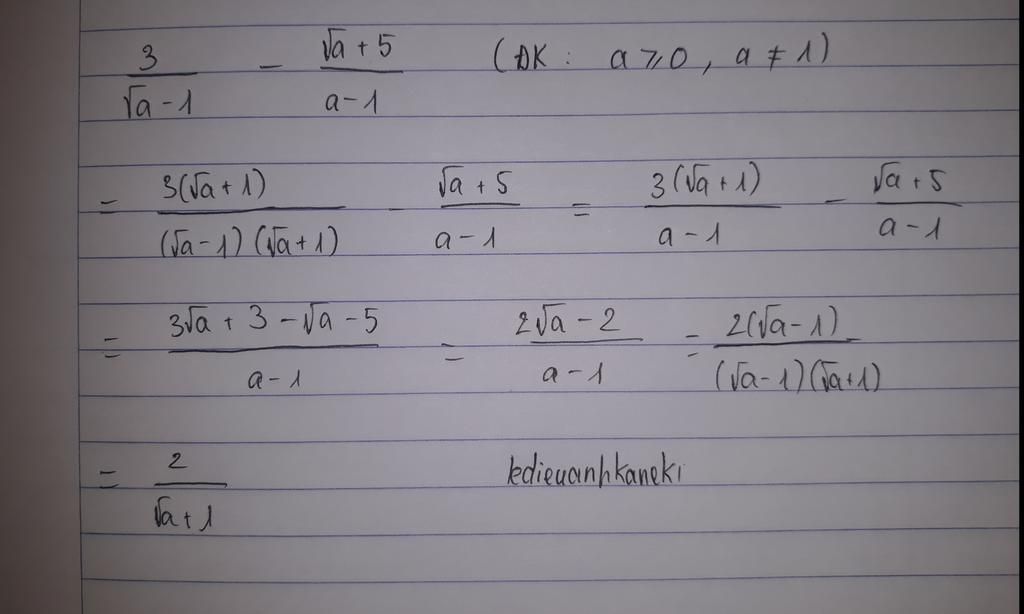 3/(√a - 1) - (√a + 5)/(a - 1) (ĐK: a ⩾ 0, a ≠ 1)
= 3(√a + 1)/((√a - 1)(√a + 1)) - (√a + 5)/(a - 1) = 3(√a + 1)/(a - 1) - (√a + 5)/(a - 1)
= (3√a + 3 - √a - 5)/(a - 1) = (2√a - 2)/(a - 1) = 2(√a - 1)/((√a - 1)(√a + 1))
= 2/(√a + 1) kdieuanhkaneki